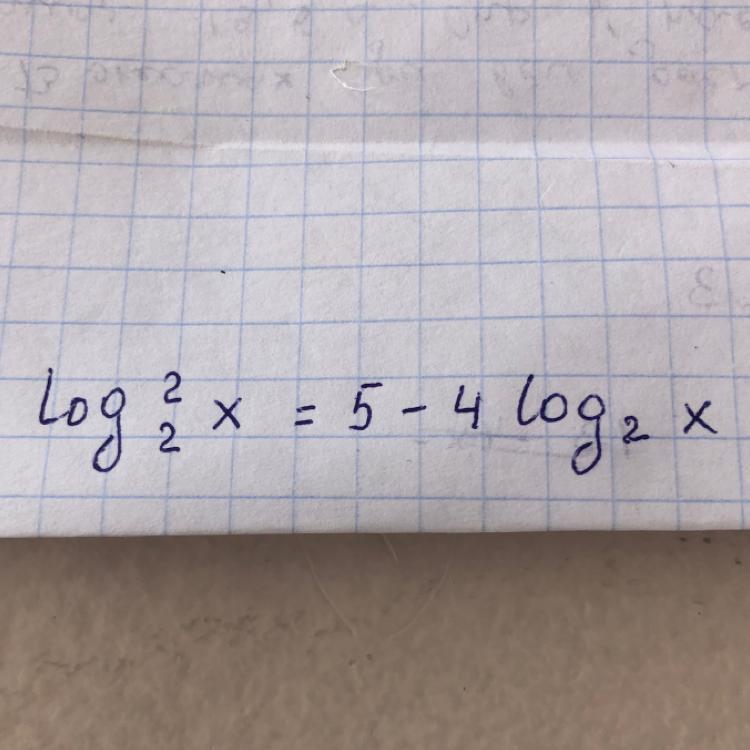 log₂² x = 5 - 4 log₂ x